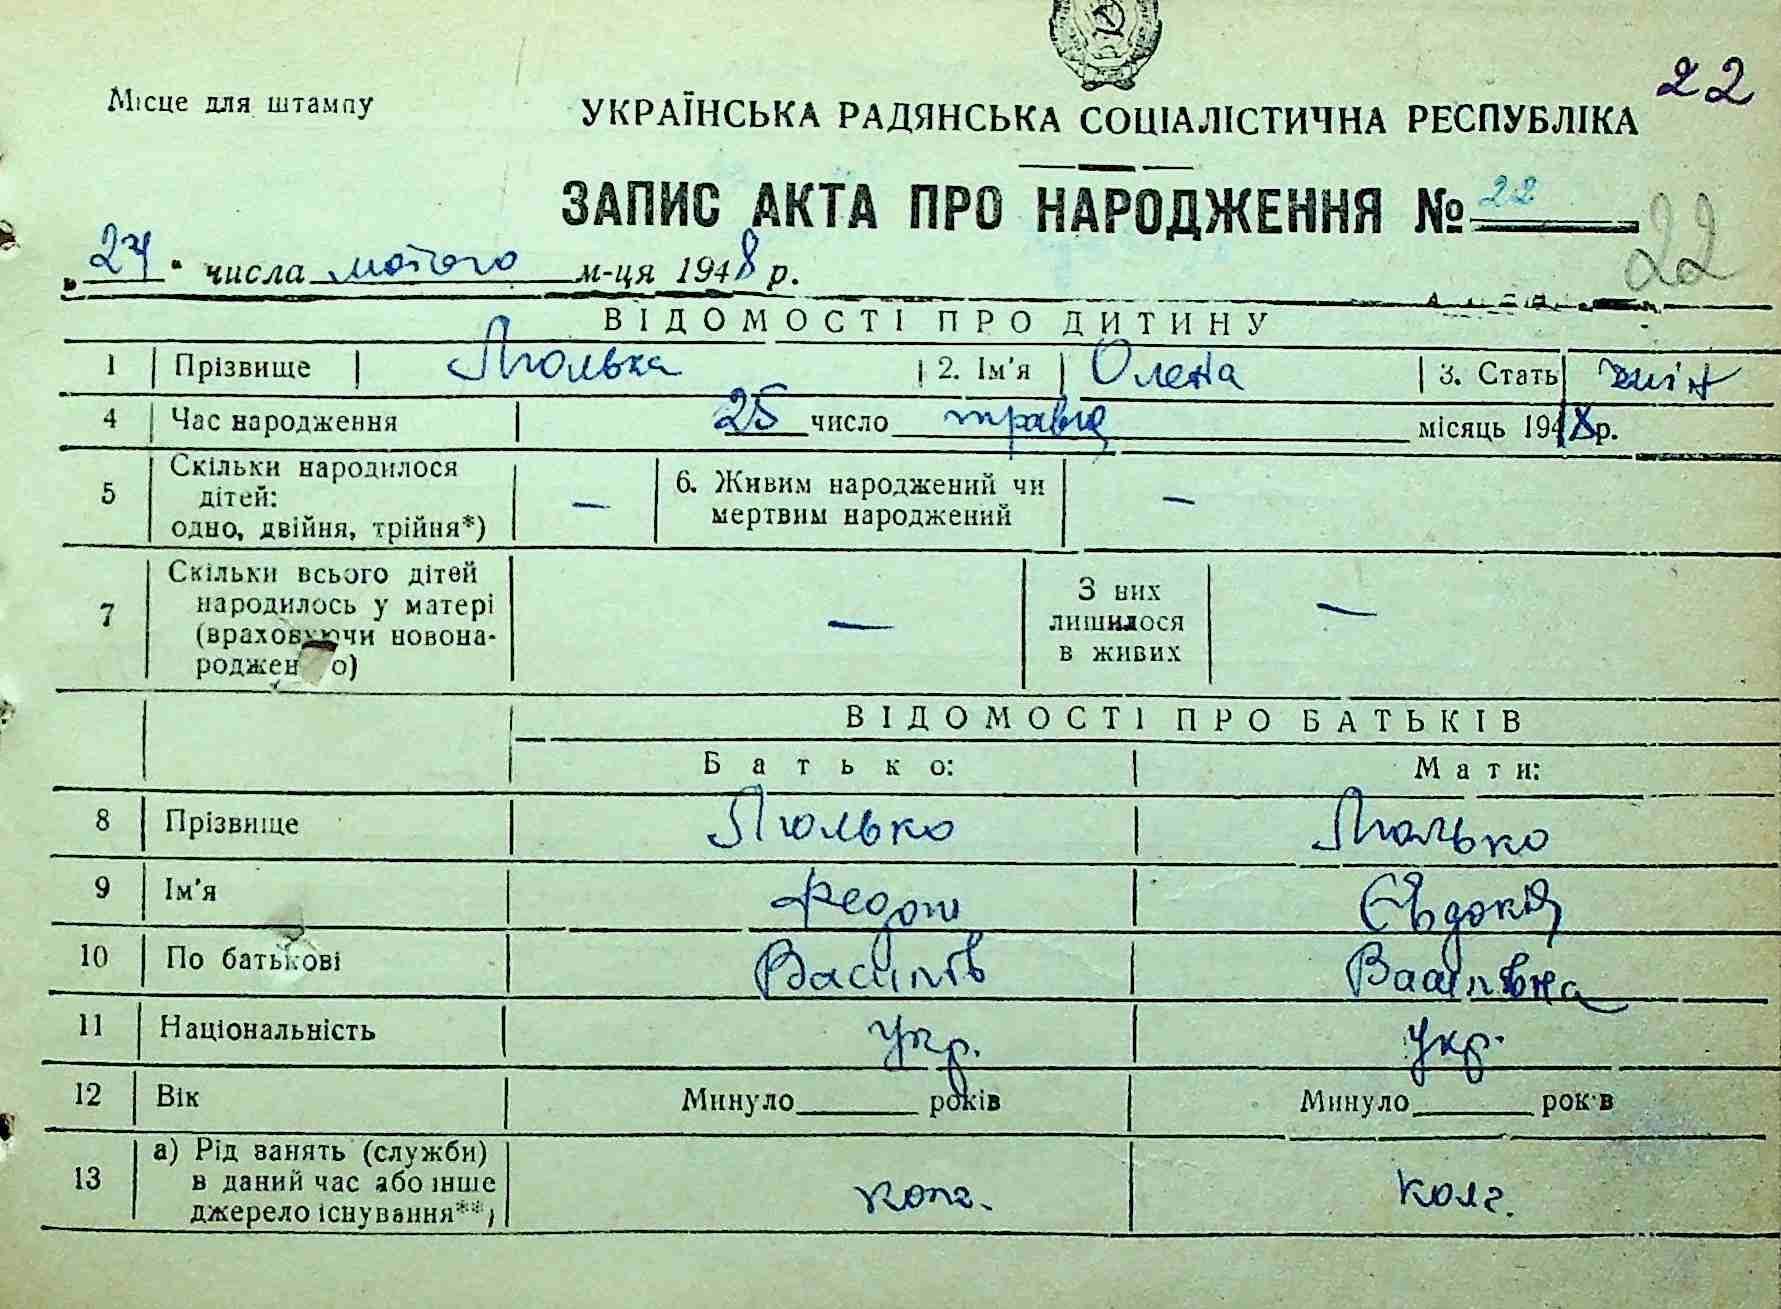 22
Місце для штампу
УКРАЇНСЬКА РАДЯНСЬКА СОЦІАЛІСТИЧНА РЕСПУБЛІКА
ЗАПИС АКТА ПРО НАРОДЖЕННЯ № 22
22
„24" числа лютого м-ця 1948 р.
ВІДОМОСТІ ПРО ДИТИНУ
1 Прізвище Люлька 2. Ім'я Олена 3. Стать жін
4 Час народження 25 число травня місяць 1948 р.
5 Скільки народилося дітей: одно, двійня, трійня*) — 6. Живим народжений чи мертвим народжений —
7 Скільки всього дітей народилось у матері (враховуючи новонародженого) — З них лишилося в живих —
ВІДОМОСТІ ПРО БАТЬКІВ
Батько: Мати:
8 Прізвище Люлько Люлько
9 Ім'я Федот Євдокія
10 По батькові Васильов Василівна
11 Національність укр. укр.
12 Вік Минуло років Минуло років
13 а) Рід занять (служби) в даний час або інше джерело існування**) колг. колг.